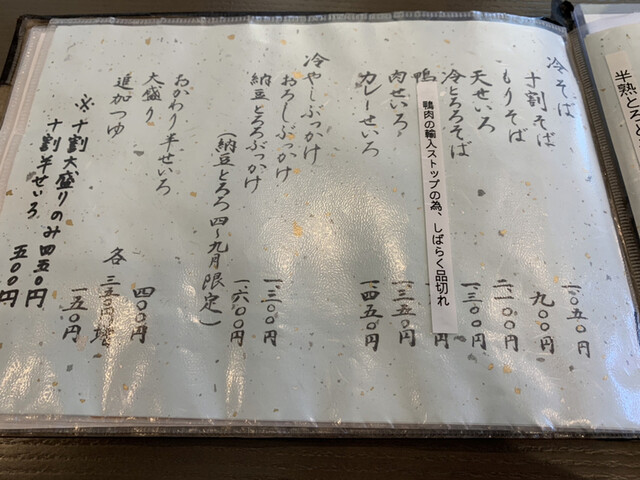 冷そば
十割そば 一、〇五〇円
もりそば 九〇〇円
天せいろ 二、一〇〇円
冷とろろそば 一、三〇〇円
鴨
鴨肉の輸入ストップの為、しばらく品切れ
円
肉せいろ 一、三五〇円
カレーせいろ 一、四五〇円
冷やしぶっかけ
おろしぶっかけ 一、三〇〇円
納豆とろろぶっかけ 一、六〇〇円
(納豆とろろ 四〜九月限定)
おかわり半せいろ 四〇〇円
大盛り 各 三五〇円増
追加つゆ 一五〇円
※十割大盛りのみ 四五〇円
十割半せいろ 五〇〇円
半熟とろ